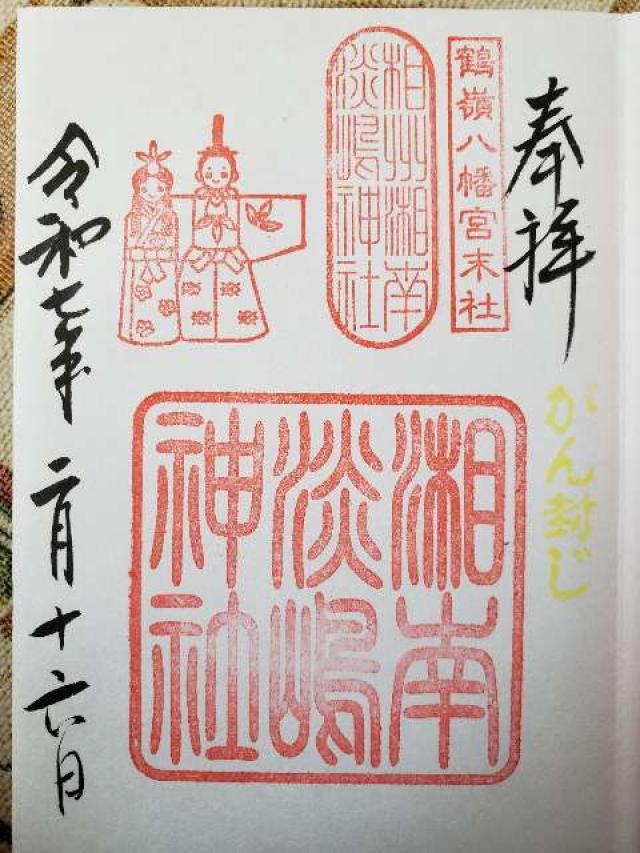 奉拝
がん封じ
鶴嶺八幡宮末社
相州湘南
淡嶋神社
湘南
淡嶋
神社
令和七年二月十六日